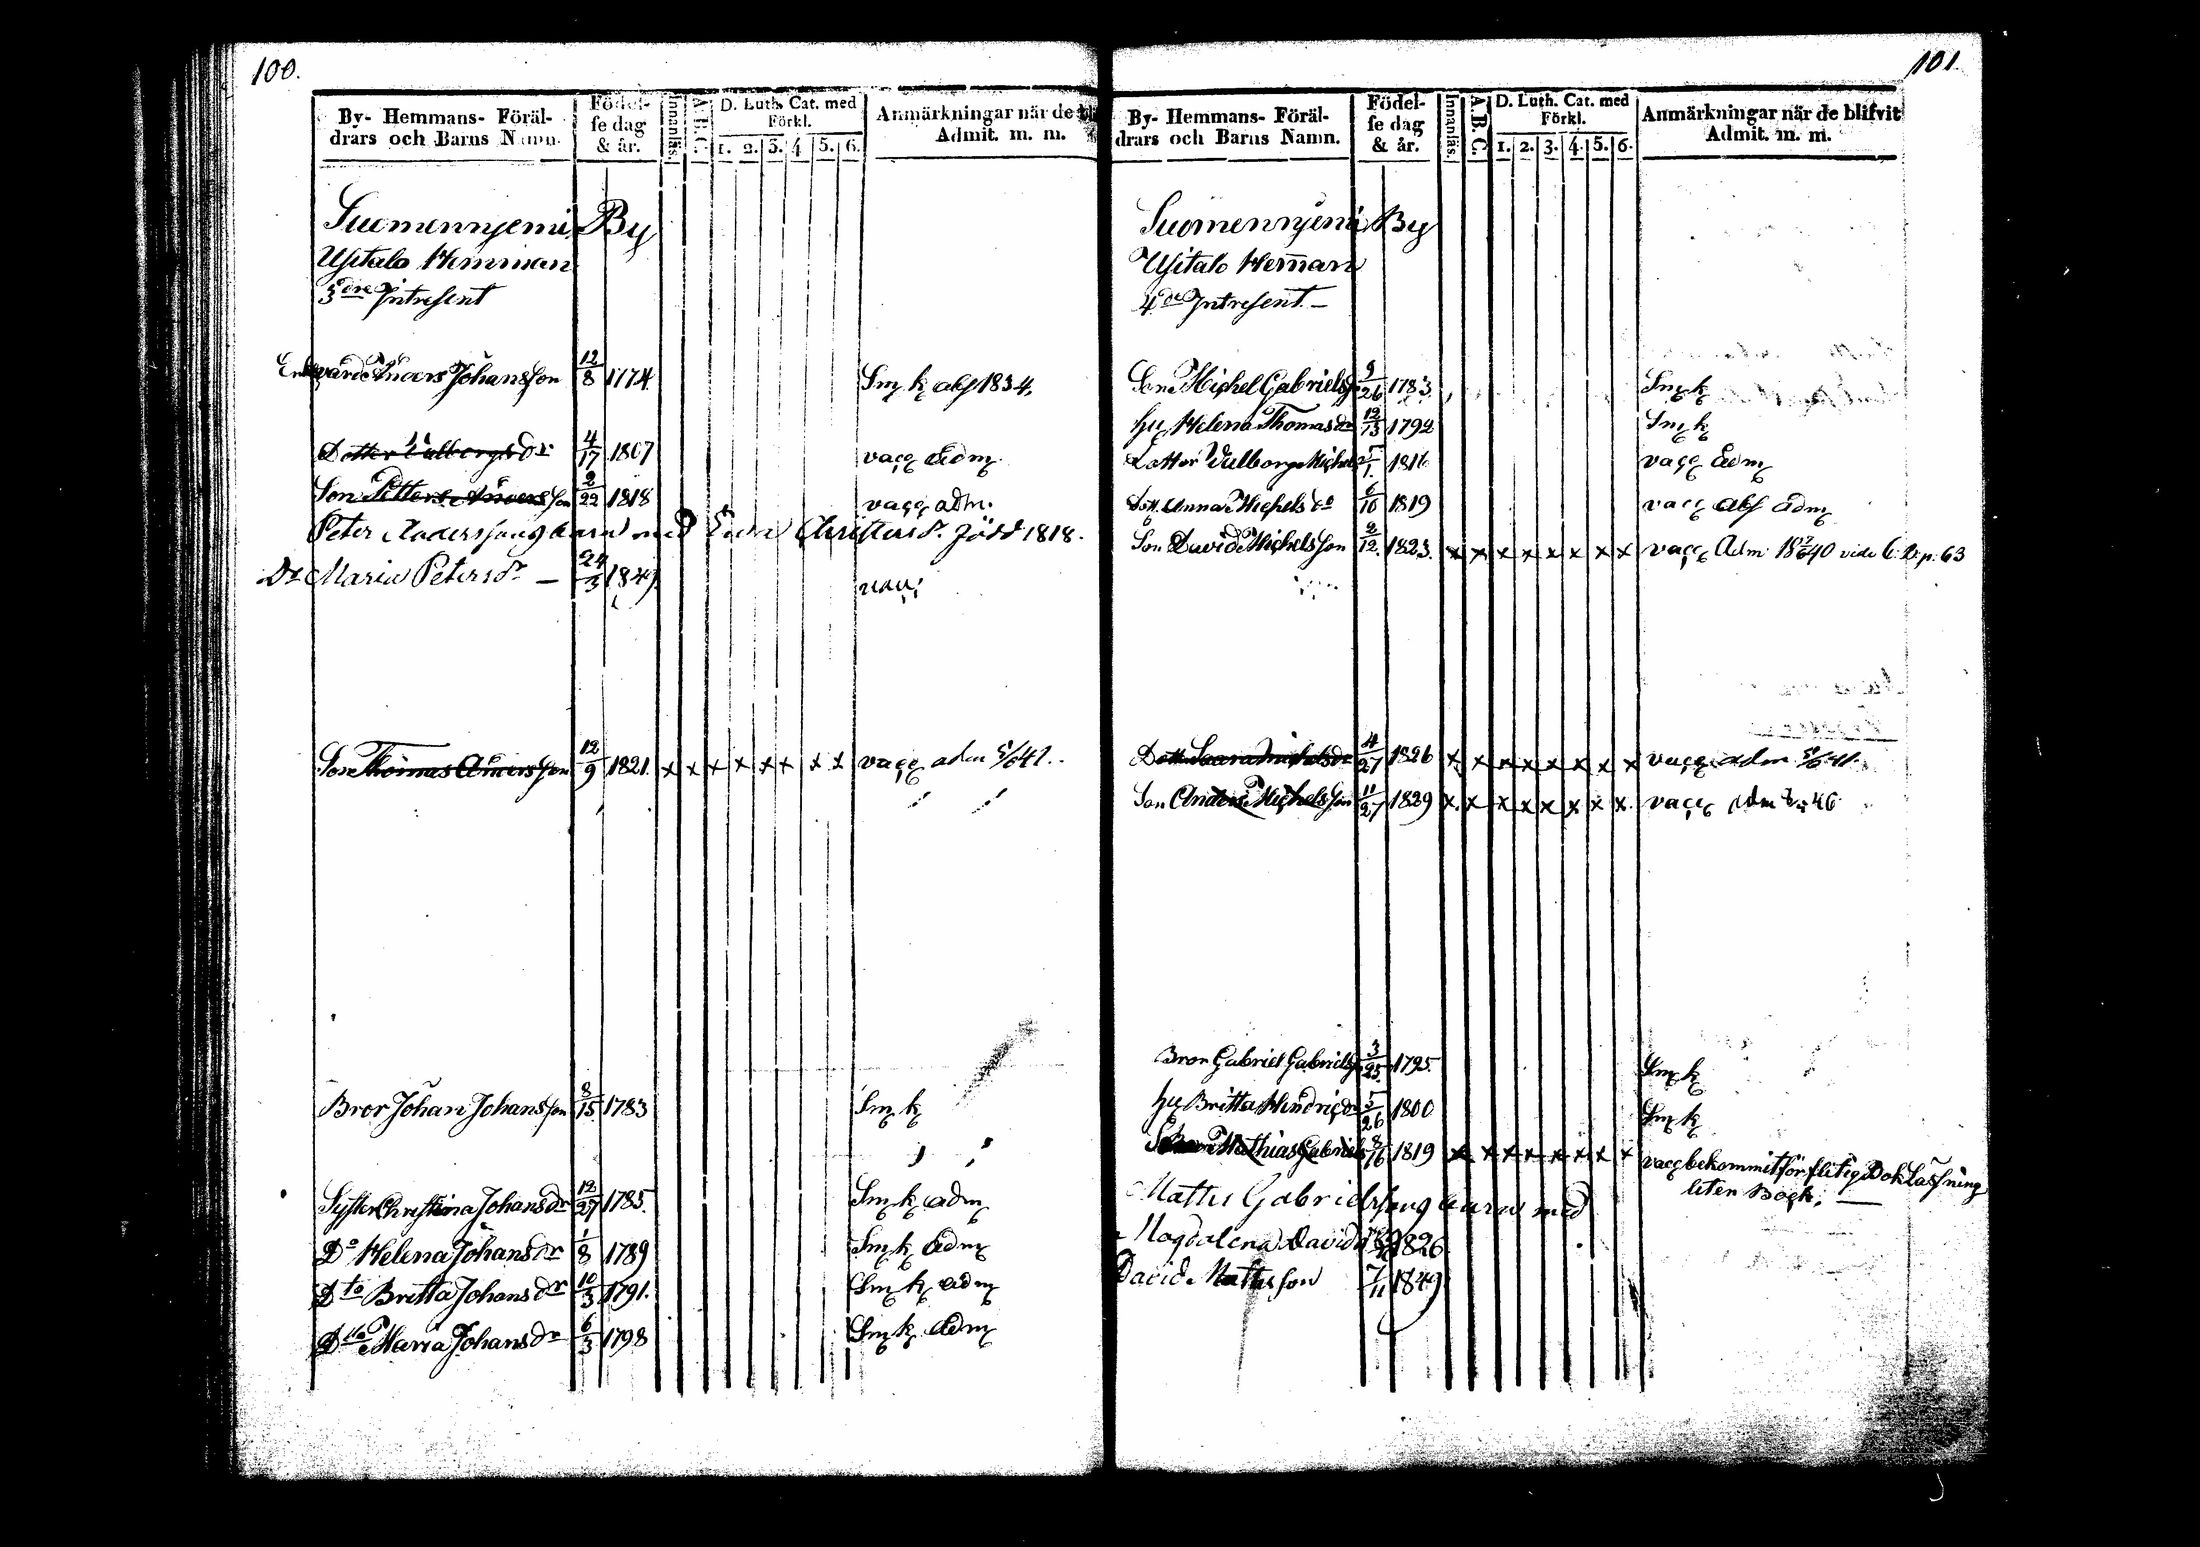 100.
By- Hemmans- Föräl-
drars och Barns Namn.
Födel-
se dag
& år.
Innanläs.
A.B.C.
D. Luth. Cat. med
Förkl.
1. 2. 3. 4 5. 6.
Anmärkningar när de
Admit. m. m.
Suomennjemi By
Usitalo Hemman
3dre Intressent
Anders Johansson 12/8 1774. Smk abs 1834.
Dotter Valborg dr 4/17 1807 vacc adm.
Son Petter Andersson 2/22 1818 vacc adm.
Peter Andersson med Christina dr född 1818.
Dr Maria Petersdr — 24/3 1849. vacc
Son Thomas Andersson 12/9 1821. x x x x x x x x vacc adm 41.
Bror Johan Johansson 8/15 1783 Smk
Syster Christina Johansdr 12/27 1785. Smk adm
Do Helena Johansdr 1/8 1789 Smk adm
Dto Britta Johansdr 10/3 1791. Smk adm
Dto Maria Johansdr 6/3 1798 Smk adm
101.
By- Hemmans- Föräl-
drars och Barns Namn.
Födel-
se dag
& år.
Innanläs.
A.B.C.
D. Luth. Cat. med
Förkl.
1. 2. 3. 4. 5. 6.
Anmärkningar när de blifvit
Admit. m. m.
Suomennjemi By
Usitalo Hemman
4de Intressent. —
Son Michel Gabrielss 9/26 1783. Smk
hu Helena Thomasdr 12/13 1792 Smk
Dotter Valborg Michelsd 5/1. 1816 vacc adm
Dott. Anna Michelsdr 6/10 1819 vacc abs adm
Son David Michelsson 2/12. 1823. x x x x x x x x vacc Adm 1840 vide C. B. p. 63
Dott Saara Michelsdr 4/27 1826 x x x x x x x x vacc adm 41.
Son Anders Michelsson 11/27 1829 x x x x x x x x vacc adm 46
Bror Gabriel Gabrielss 3/25. 1795. Smk
hu Britta Hindricsdr 5/26 1800 Smk
Mathias Gabriels 8/16 1819 x x x x x x x x vacc bekommit för flitig Bokläsning
liten Bock. —
Matts Gabrielsson med
Magdalena Davidsdr 1826
David Mattsson 7/11 1849